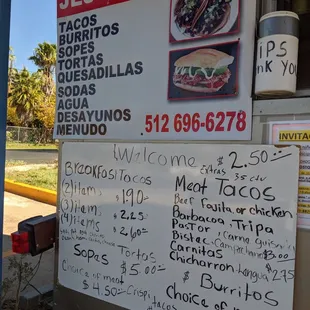 TACOS
BURRITOS
SOPES
TORTAS
QUESADILLAS
SODAS
AGUA
DESAYUNOS
MENUDO
512 696-6278
TIPS
THANK YOU
Welcome
Breakfast Tacos
(2) Items 1.90
(3) items 2.25
(4) items 2.60
Sopes Tortas
$5.00
Choice of meat
$4.50 Crispy
tacos
Extras 35¢
$2.50
Meat Tacos
Beef Fajita or chicken
Barbacoa, Tripa
Pastor, Carne guisada
Bistec, Campechano $3.00
Carnitas
Chicharron Lengua $2.75
Burritos
Choice of
INVITA